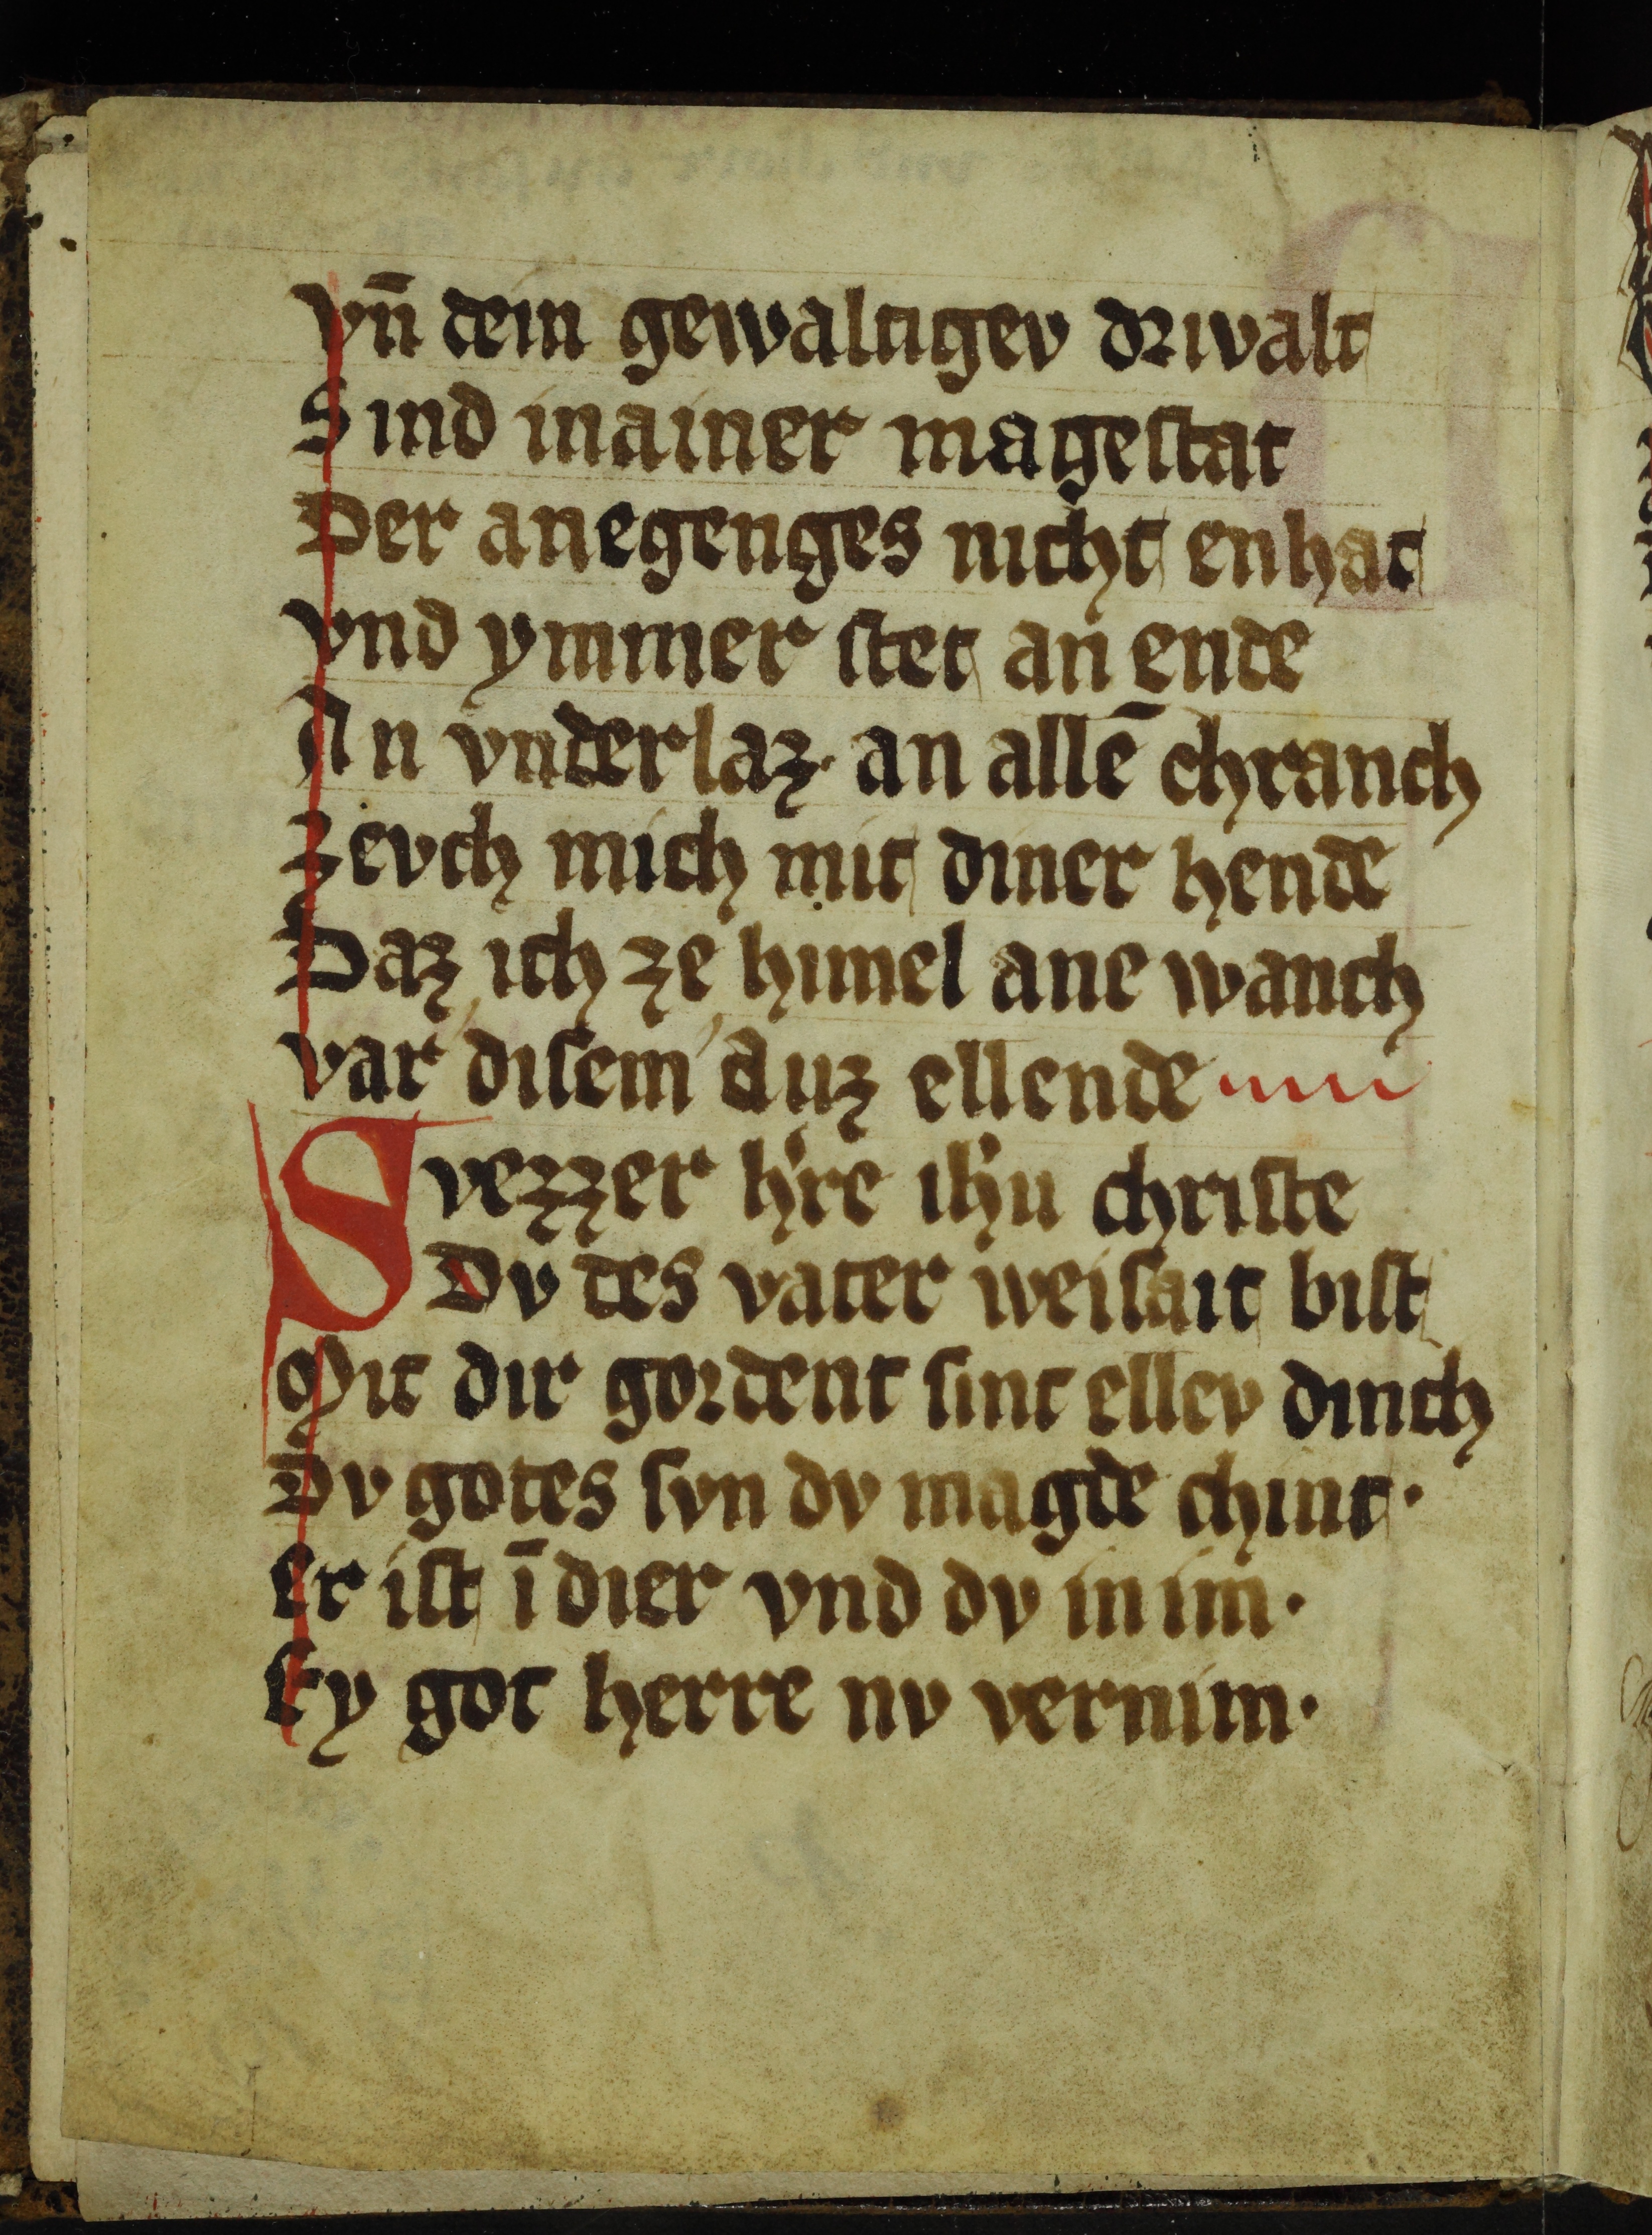 vn̄ dein gewaltigev drivalt
Sind in ainer mageſtat
Der anegenges nicht enhat
vnd ymmer ſtet an ende
An vnderlaz · an allē chranch
Zevch mich mit diner hende
Daz ich ze himel ane wanch
var diſem auz ellende
Svezzer h're ih'u chriſte
Dv des vater weiſait biſt
Mit dir gordent ſint ellev dinch
Dv gotes ſvn dv magde chint ·
er iſt ī dier vnd dv in im ·
ey got herre nv vernim ·